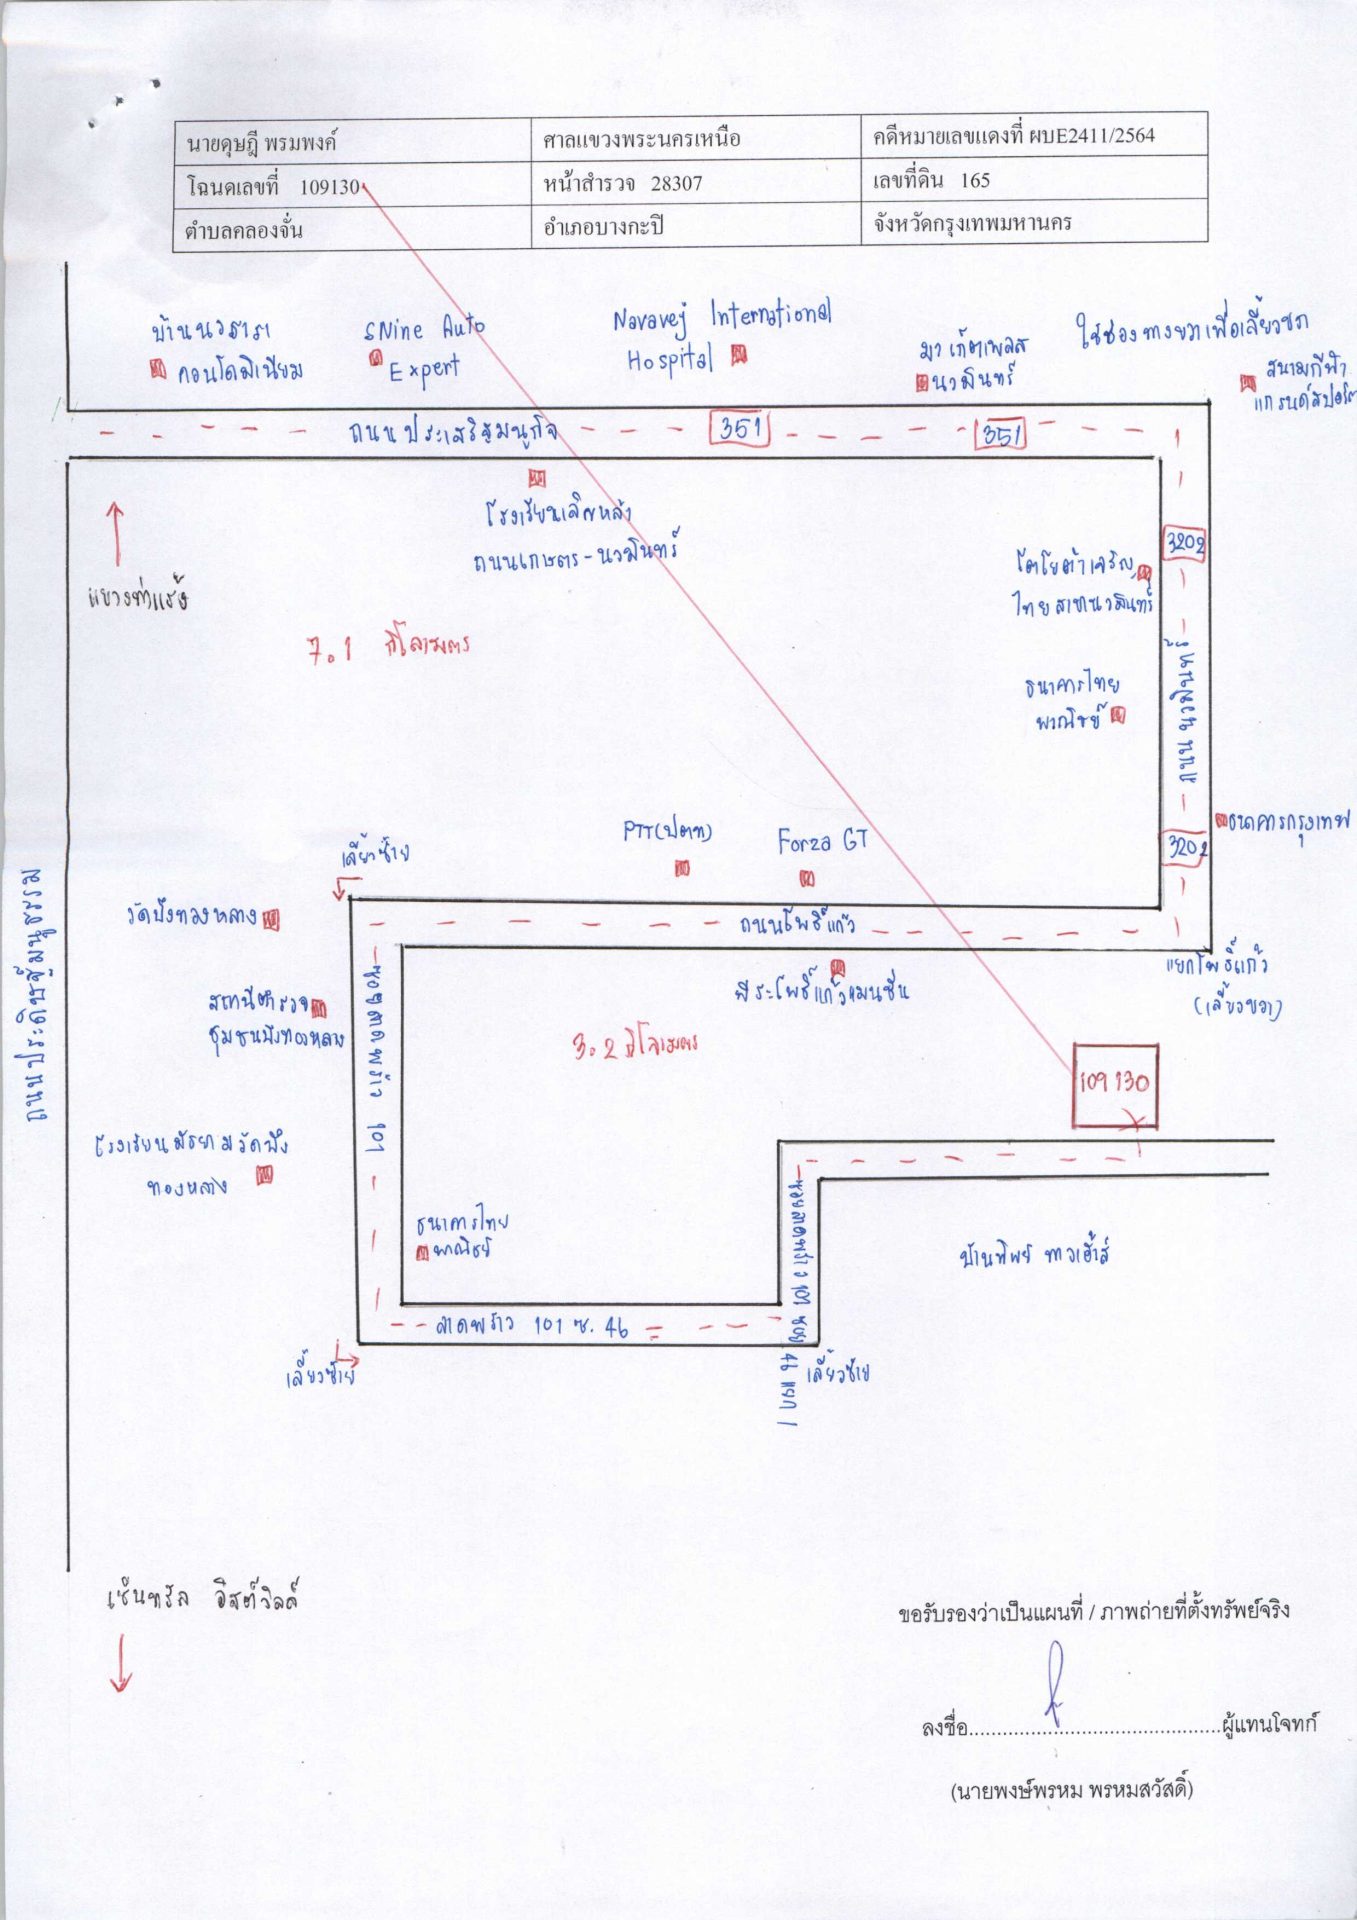 นายดุษฎี พรมพงค์
ศาลแขวงพระนครเหนือ
คดีหมายเลขแดงที่ ผบE2411/2564
โฉนดเลขที่ 109130
หน้าสำรวจ 28307
เลขที่ดิน 165
ตำบลคลองจั่น
อำเภอบางกะปี
จังหวัดกรุงเทพมหานคร
บ้านนวธารา
คอนโดมิเนียม
SNine Auto
Expert
Navavej International
Hospital
มาเก็ตเพลส
นวมินทร์
ใช้ช่องทางขวาเพื่อเลี้ยวขวา
สนามกีฬา
แกรนด์สปอร์ต
ถนนประเสริฐมนูกิจ
351
351
โรงเรียนเลิศหล้า
ถนนเกษตร-นวมินทร์
3202
แขวงท่าแร้ง
โตโยต้าเจริญ
ไทยสาขานวมินทร์
7.1 กิโลเมตร
ถนนนวมินทร์
ธนาคารไทย
พาณิชย์
ธนาคารกรุงเทพ
PTT(ปตท)
Forza GT
3202
เลี้ยวซ้าย
ถนนประดิษฐ์มนูธรรม
วัดบึงทองหลาง
ถนนโพธิ์แก้ว
แยกโพธิ์แก้ว
(เลี้ยวขวา)
พีระโพธิ์แก้วแมนชั่น
สถานีตำรวจ
ชุมชนบึงทองหลาง
ซอยลาดพร้าว 101
3.2 กิโลเมตร
109130
โรงเรียนมัธยมวัดบึง
ทองหลาง
ธนาคารไทย
พาณิชย์
ซอยลาดพร้าว 101 ซอย 46 แยก 1
บ้านทิพย์ ทาวเฮ้าส์
ลาดพร้าว 101 ซ. 46
เลี้ยวซ้าย
เลี้ยวซ้าย
เซ็นทรัล อีสต์วิลล์
ขอรับรองว่าเป็นแผนที่ / ภาพถ่ายที่ตั้งทรัพย์จริง
ลงชื่อ.............................................ผู้แทนโจทก์
(นายพงษ์พรหม พรหมสวัสดิ์)